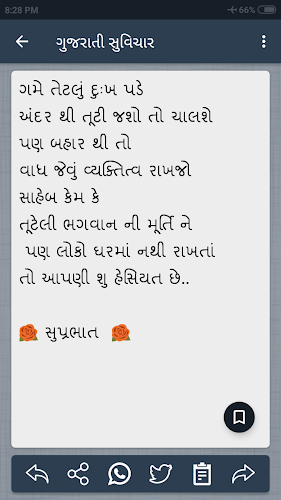 8:28 PM
66%
ગુજરાતી સુવિચાર
ગમે તેટલું દુઃખ પડે
અંદર થી તૂટી જશો તો ચાલશે
પણ બહાર થી તો
વાઘ જેવું વ્યક્તિત્વ રાખજો
સાહેબ કેમ કે
તૂટેલી ભગવાન ની મૂર્તિ ને
પણ લોકો ઘરમાં નથી રાખતાં
તો આપણી શુ હેસિયત છે..
🌹 સુપ્રભાત 🌹